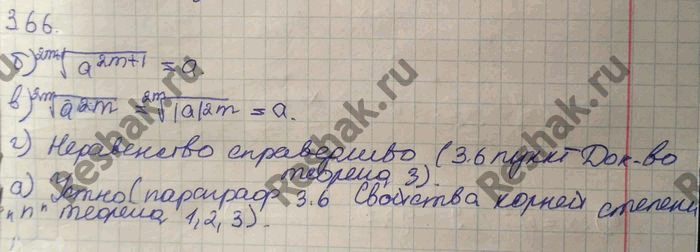 366.
б) ²ᵐ⁺¹√a²ᵐ⁺¹ = a
в) ²ᵐ√a²ᵐ = ²ᵐ√|a|²ᵐ = a.
г) Неравенство справедливо (3.6 пункт Док-во
теорема 3).
а) Устно (параграф 3.6 Свойства корней степени
"n" теорема 1, 2, 3).
Reshak.ru
Reshak.ru
Reshak.ru